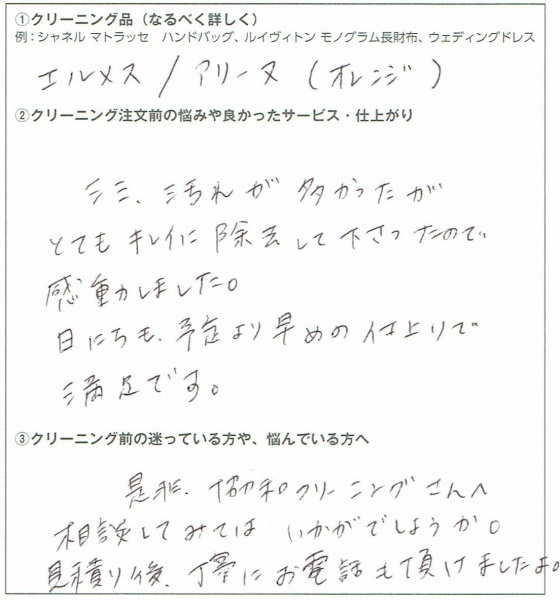 ①クリーニング品（なるべく詳しく）
例：シャネル マトラッセ　ハンドバッグ、ルイヴィトン モノグラム長財布、ウェディングドレス
エルメス / アリーヌ (オレンジ)
②クリーニング注文前の悩みや良かったサービス・仕上がり
シミ、汚れが多かったが
とてもキレイに除去して下さったので
感動しました。
日にちも、予定より早めの仕上りで
満足です。
③クリーニング前の迷っている方や、悩んでいる方へ
是非、協和クリーニングさんへ
相談してみては いかがでしょうか。
見積り後、丁寧にお電話も頂けましたよ。